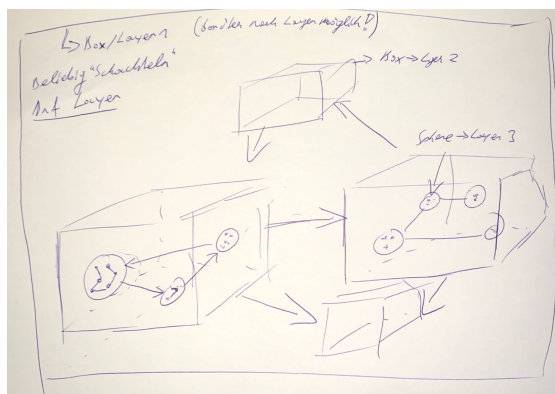 ↳ Box/Layer 1 (darüber noch Layer möglich!)
Beliebig "Schachteln"
Anf Layer
→ Box → Lyer 2
Sphere → Layer 3